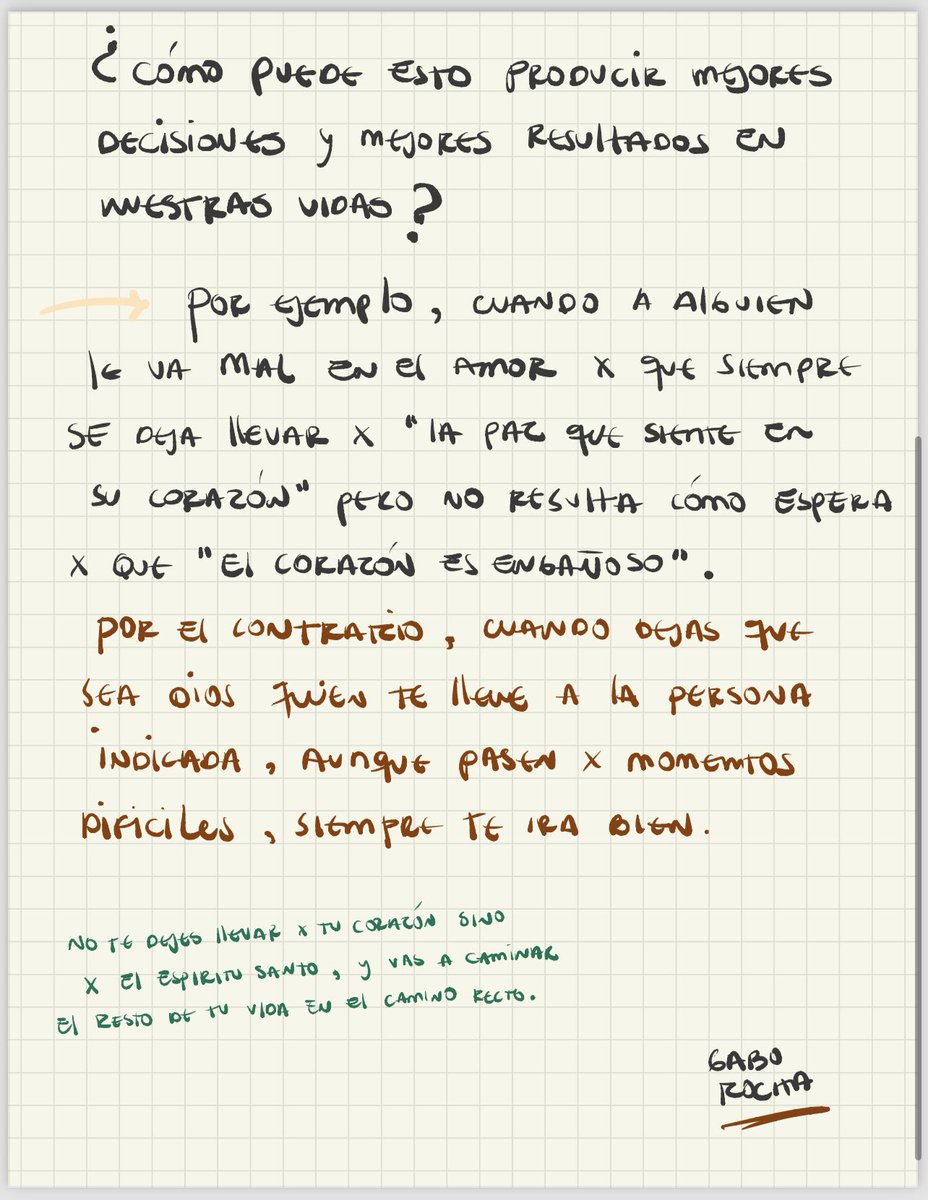 ¿Cómo puede esto producir mejores
decisiones y mejores resultados en
nuestras vidas?
Por ejemplo, cuando a alguien
le va mal en el amor x que siempre
se deja llevar x "la paz que siente en
su corazón" pero no resulta cómo espera
x que "el corazón es engañoso".
Por el contrario, cuando dejas que
sea Dios quien te lleve a la persona
indicada, aunque pasen x momentos
dificiles, siempre te ira bien.
No te dejes llevar x tu corazón sino
x el Espiritu Santo, y vas a caminar
el resto de tu vida en el camino recto.
Gabo
Rocha